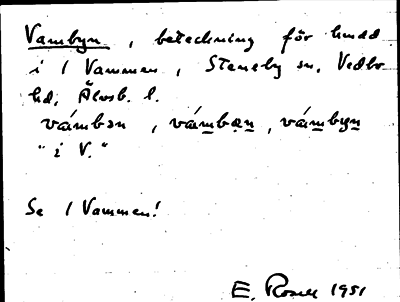 Vambyn, beteckning för hmdd
i / Vammen, Steneby sn, Vedbo
hd, Älvsb. l.
vámbən, vámbæn, vámbyn
"i V."
Se / Vammen!
E. Rosell 1951